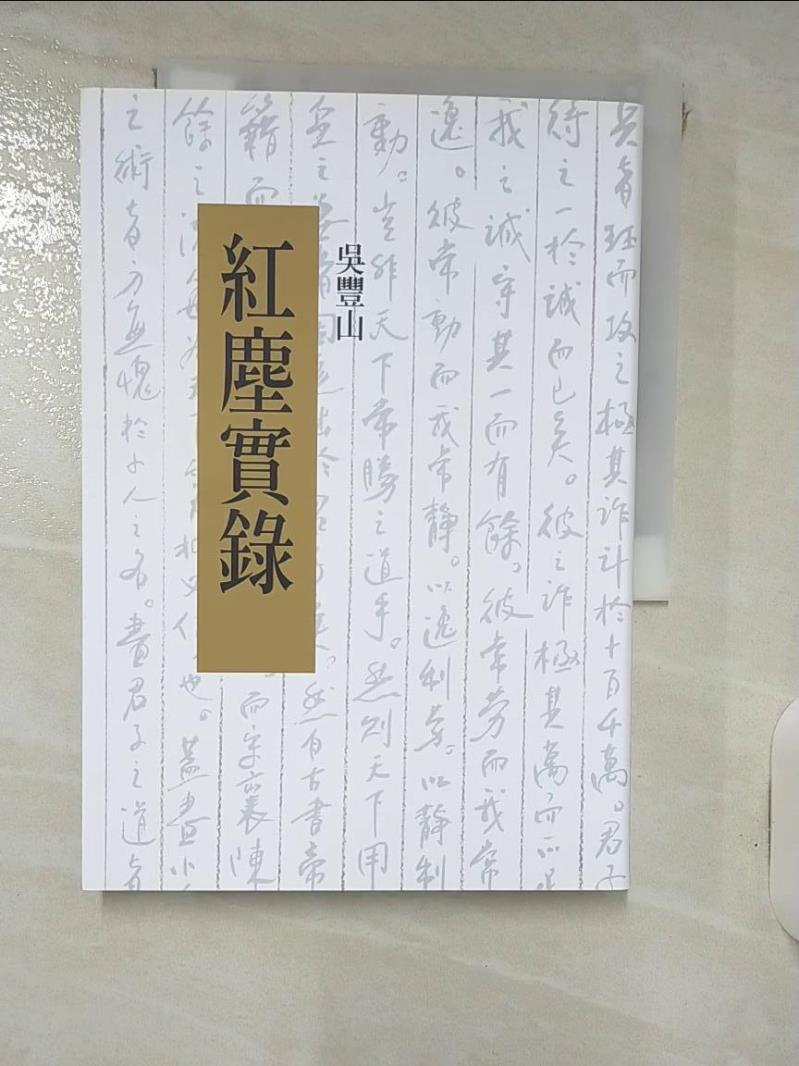 紅塵實錄
吳豐山
而攻之極其詐計於十百千萬。君子
待之一於誠而已矣。彼之詐極其萬而不足
我之誠守其一而有餘。彼常勞而我常
逸。彼常動而我常靜。以逸制勞。以靜制
動。豈非天下常勝之道乎。然則天下用
然自古書帝
籍而 而宋襄陳
餘之 也。蓋盡小
之術者方無愧於小人之名。盡君子之道者